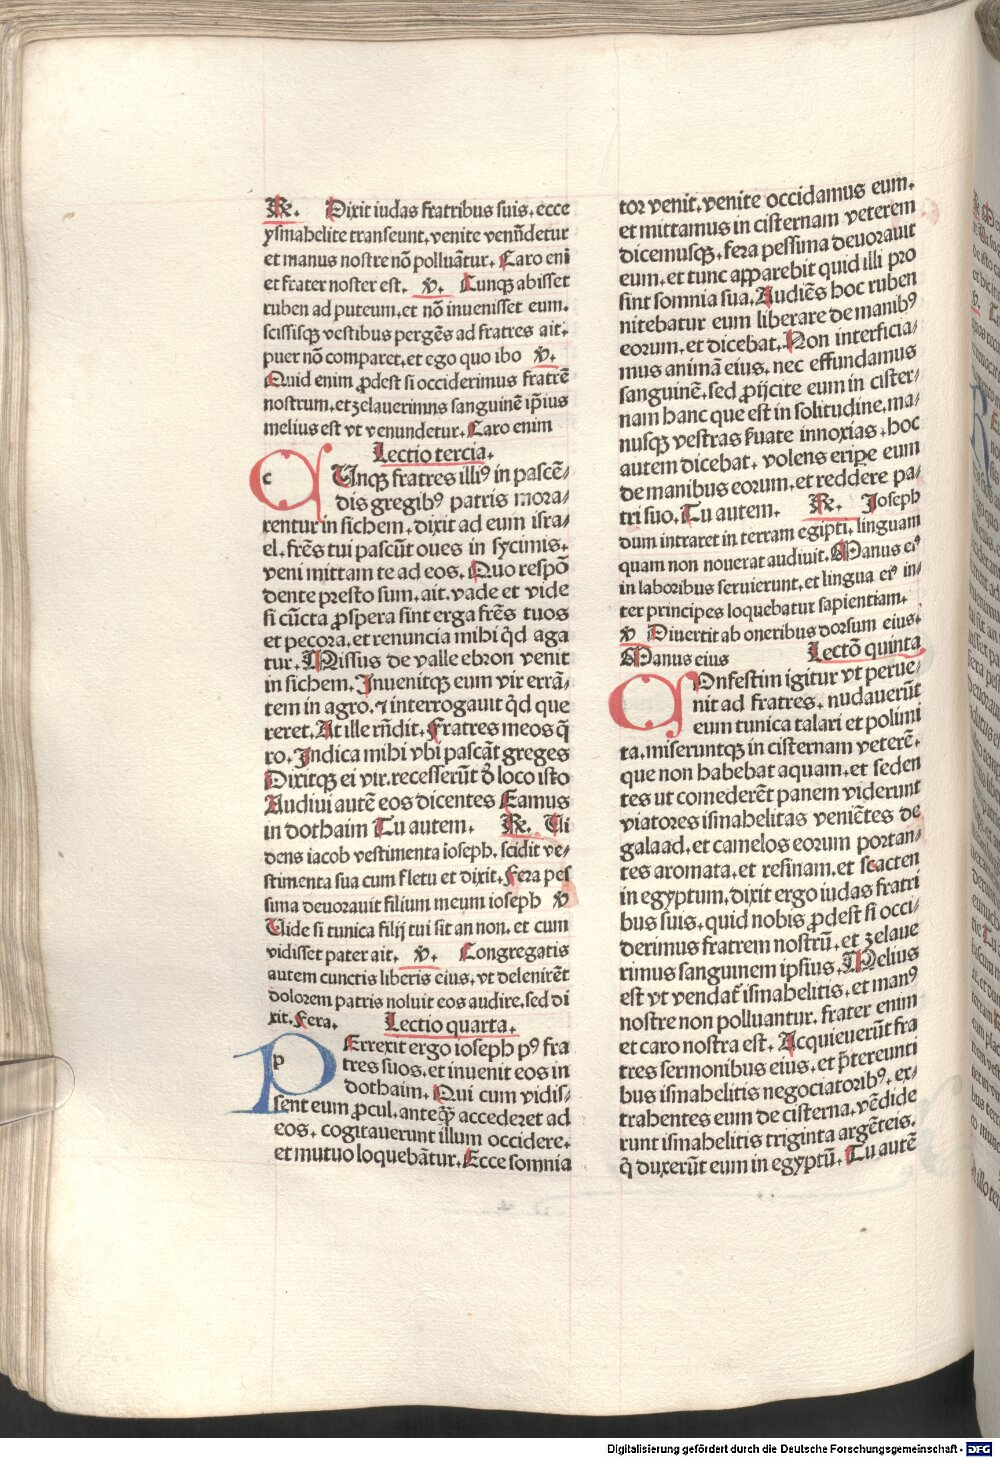 ℟. Dixit iudas fratribus suis. ecce
ysmahelite transeunt. venite venūdetur
et manus nostre nō polluātur. Caro eni
et frater noster est. ℣. Cunqȝ abisset
ruben ad puteum. et nō inuenisset eum.
scissisqȝ vestibus pergēs ad fratres ait.
puer nō comparet. et ego quo ibo ℣.
Quid enim ꝓdest si occiderimus fratrē
nostrum. et zelauerimns sanguinē ip̄ius
melius est vt venundetur. Caro enim
Lectio tercia.
c Unqȝ fratres illiꝰ in pascē⸗
dis gregibꝰ patris mora⸗
rentur in sichem. dixit ad eum isra⸗
el. frēs tui pascūt oues in sycimis.
veni mittam te ad eos. Quo respō
dente presto sum. ait. vade et vide
si cūcta ꝓspera sint erga frēs tuos
et pecora. et renuncia mihi q̄d aga
tur. Missus de valle ebron venit
in sichem. Inuenitqȝ eum vir errā⸗
tem in agro. ⁊ interrogauit q̄d que
reret. At ille rn̄dit. Fratres meos q̄
ro. Indica mihi vbi pascāt greges
Dixitqȝ ei vir. recesserūt d̄ loco isto
Audiui autē eos dicentes Eamus
in dothaim Tu autem. ℟. Ui
dens iacob vestimenta ioseph. scidit ve⸗
stimenta sua cum fletu et dixit. Fera pes
sima deuorauit filium meum ioseph ℣
Uide si tunica filij tui sit an non. et cum
vidisset pater ait. ℣. Congregatis
autem cunctis liberis eius. vt delenirēt
dolorem patris noluit eos audire. sed di
xit. Fera. Lectio quarta.
p Errexit ergo ioseph pꝰ fra
tres suos. et inuenit eos in
dothaim. Qui cum vidis⸗
sent eum ꝓcul. anteqȝ̄ accederet ad
eos. cogitauerunt illum occidere.
et mutuo loquebātur. Ecce somnia
tor venit. venite occidamus eum.
et mittamus in cisternam veterem
dicemusqȝ. fera pessima deuorauit
eum. et tunc apparebit quid illi pro
sint somnia sua. Audiēs hoc ruben
nitebatur eum liberare de manibꝰ
eorum. et dicebat. Non interficia⸗
mus animā eius. nec effundamus
sanguinē. sed ꝓijcite eum in cister⸗
nam hanc que est in solitudine. ma⸗
nusqȝ vestras s̄uate innoxias. hoc
autem dicebat. volens eripe eum
de manibus eorum. et reddere pa⸗
tri suo. Tu autem. ℟. Ioseph
dum intraret in terram egipti. linguam
quam non nouerat audiuit. Manus eiꝰ
in laboribus seruierunt. et lingua eiꝰ in⸗
ter principes loquebatur sapientiam.
℣ Diuertit ab oneribus dorsum eius.
Manus eius Lectō quinta
Onfestim igitur vt perue⸗
nit ad fratres. nudauerūt
eum tunica talari et polimi
ta. miseruntqȝ in cisternam veterē.
que non habebat aquam. et seden
tes ut comederēt panem viderunt
viatores ismahelitas veniētes de
galaad. et camelos eorum portan⸗
tes aromata. et resinam. et stacten
in egyptum. dixit ergo iudas fratri
bus suis. quid nobis ꝓdest si occi⸗
derimus fratrem nostrū. et zelaue
rimus sanguinem ipsius. Melius
est vt vendat̄ ismahelitis. et manꝰ
nostre non polluantur. frater enim
et caro nostra est. Acquieuerūt fra
tres sermonibus eius. et p̄tereunti
bus ismahelitis negociatoribꝰ. ex⸗
trahentes eum de cisterna. vēdide
runt ismahelitis triginta argēteis.
q̄ duxerūt eum in egyptū. Tu autē
Digitalisierung gefördert durch die Deutsche Forschungsgemeinschaft - DFG